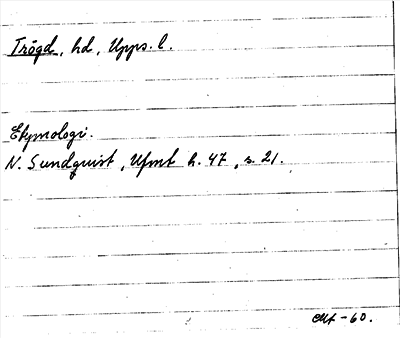 Trögd, hd, Upps. l.
Etymologi.
N. Sundquist, Ufmt h. 47, s. 21.
-60.